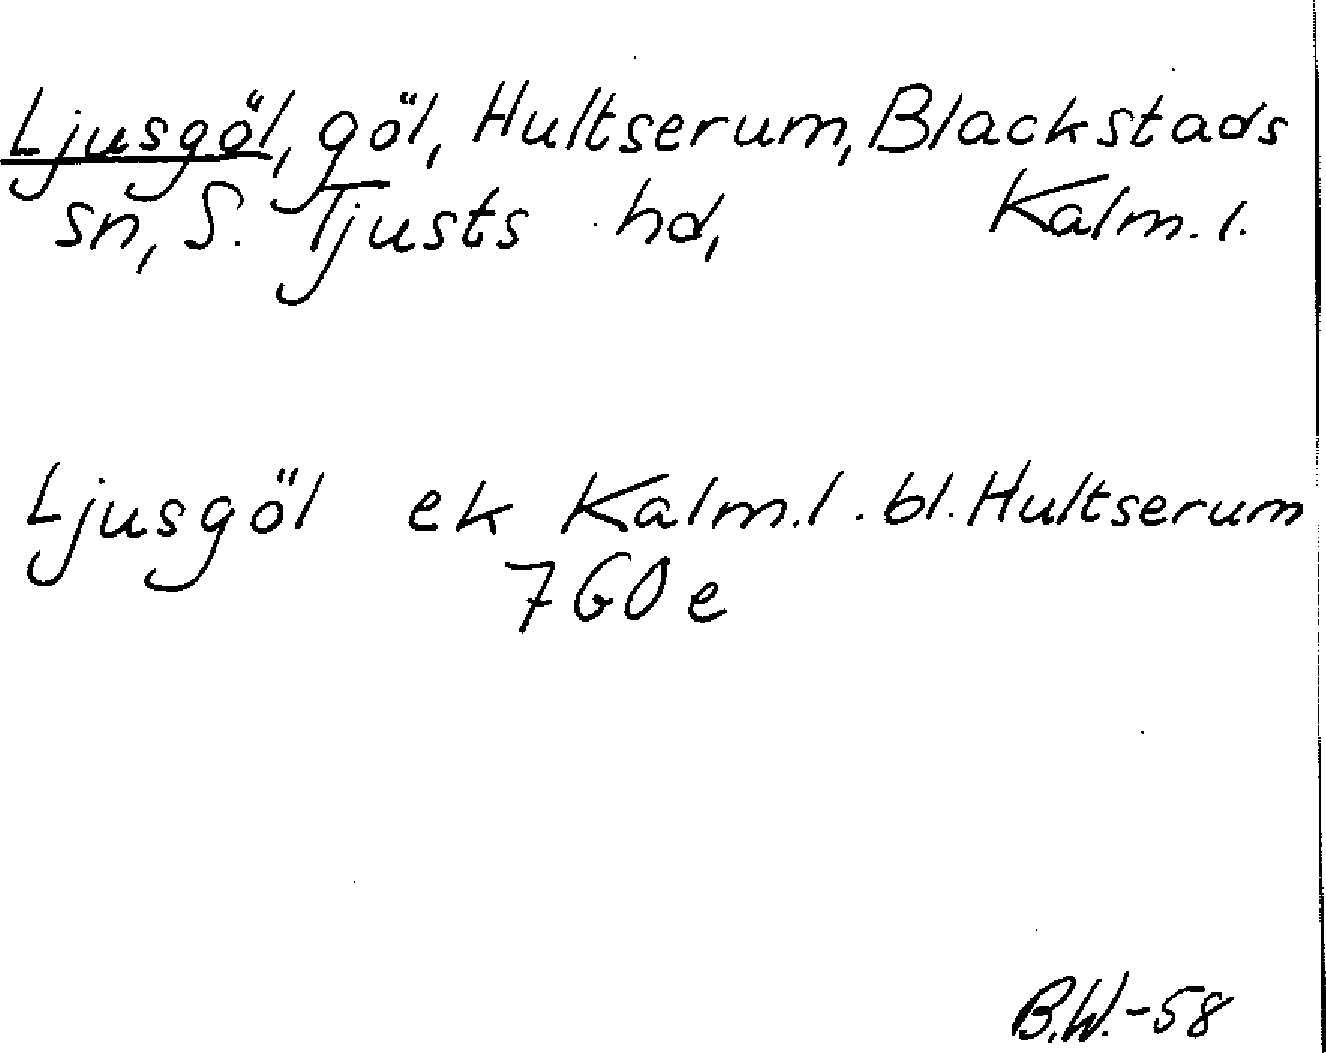 Ljusgöl, göl, Hultserum, Blackstads
sn, S. Tjusts hd, Kalm. l.
Ljusgöl ek Kalm. l. bl. Hultserum
7G0e
B.W.-58